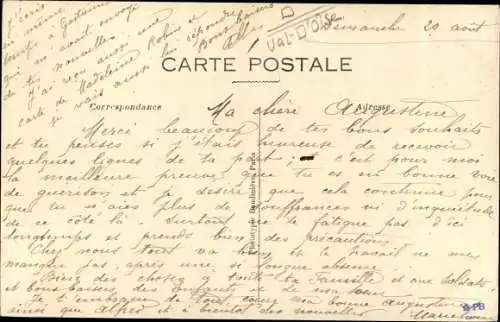 J'écris
en même
temps à Gastienne
qui m'avait envoyé
de tes nouvelles.
J'ai reçu aussi une
carte de Madeleine Robin et
je vais aussi lui répondre
Bons baisers
D
Val-D'Oise
Dimanche 20 août
CARTE POSTALE
Correspondance
Adresse
Ma chère Augustine
Merci beaucoup de tes bons souhaits
et tu penses si j'étais heureuse de recevoir
quelques lignes de ta part ; c'est pour moi
la meilleure preuve que tu es en bonne voie
de guérison et je désire que cela continue pour
que tu n'aies plus de souffrances ni d'inquiétude
de ce côté là. Surtout ne te fatigue pas d'ici
longtemps et prends bien des précautions.
Chez nous tout va bien et le travail ne me
manque pas, après une si longue absence.
Bien des choses à toute la famille et aux soldats,
et bons baisers des enfants et
Je t'embrasse de tout cœur ma bonne Augustine
ainsi que et à bientôt des nouvelles